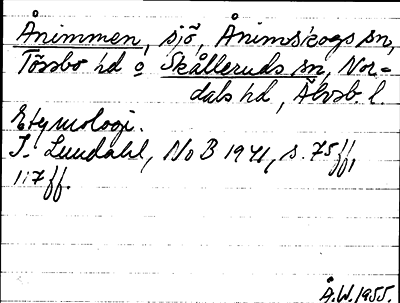 Ånimmen, sjö, Ånimskogs sn,
Tössbo hd o Skålleruds sn, Nor-
dals hd, Älvsb. l.
Etymologi.
I. Lundahl, NoB 1941, s. 75 ff,
117 ff.
Å.W. 1955.